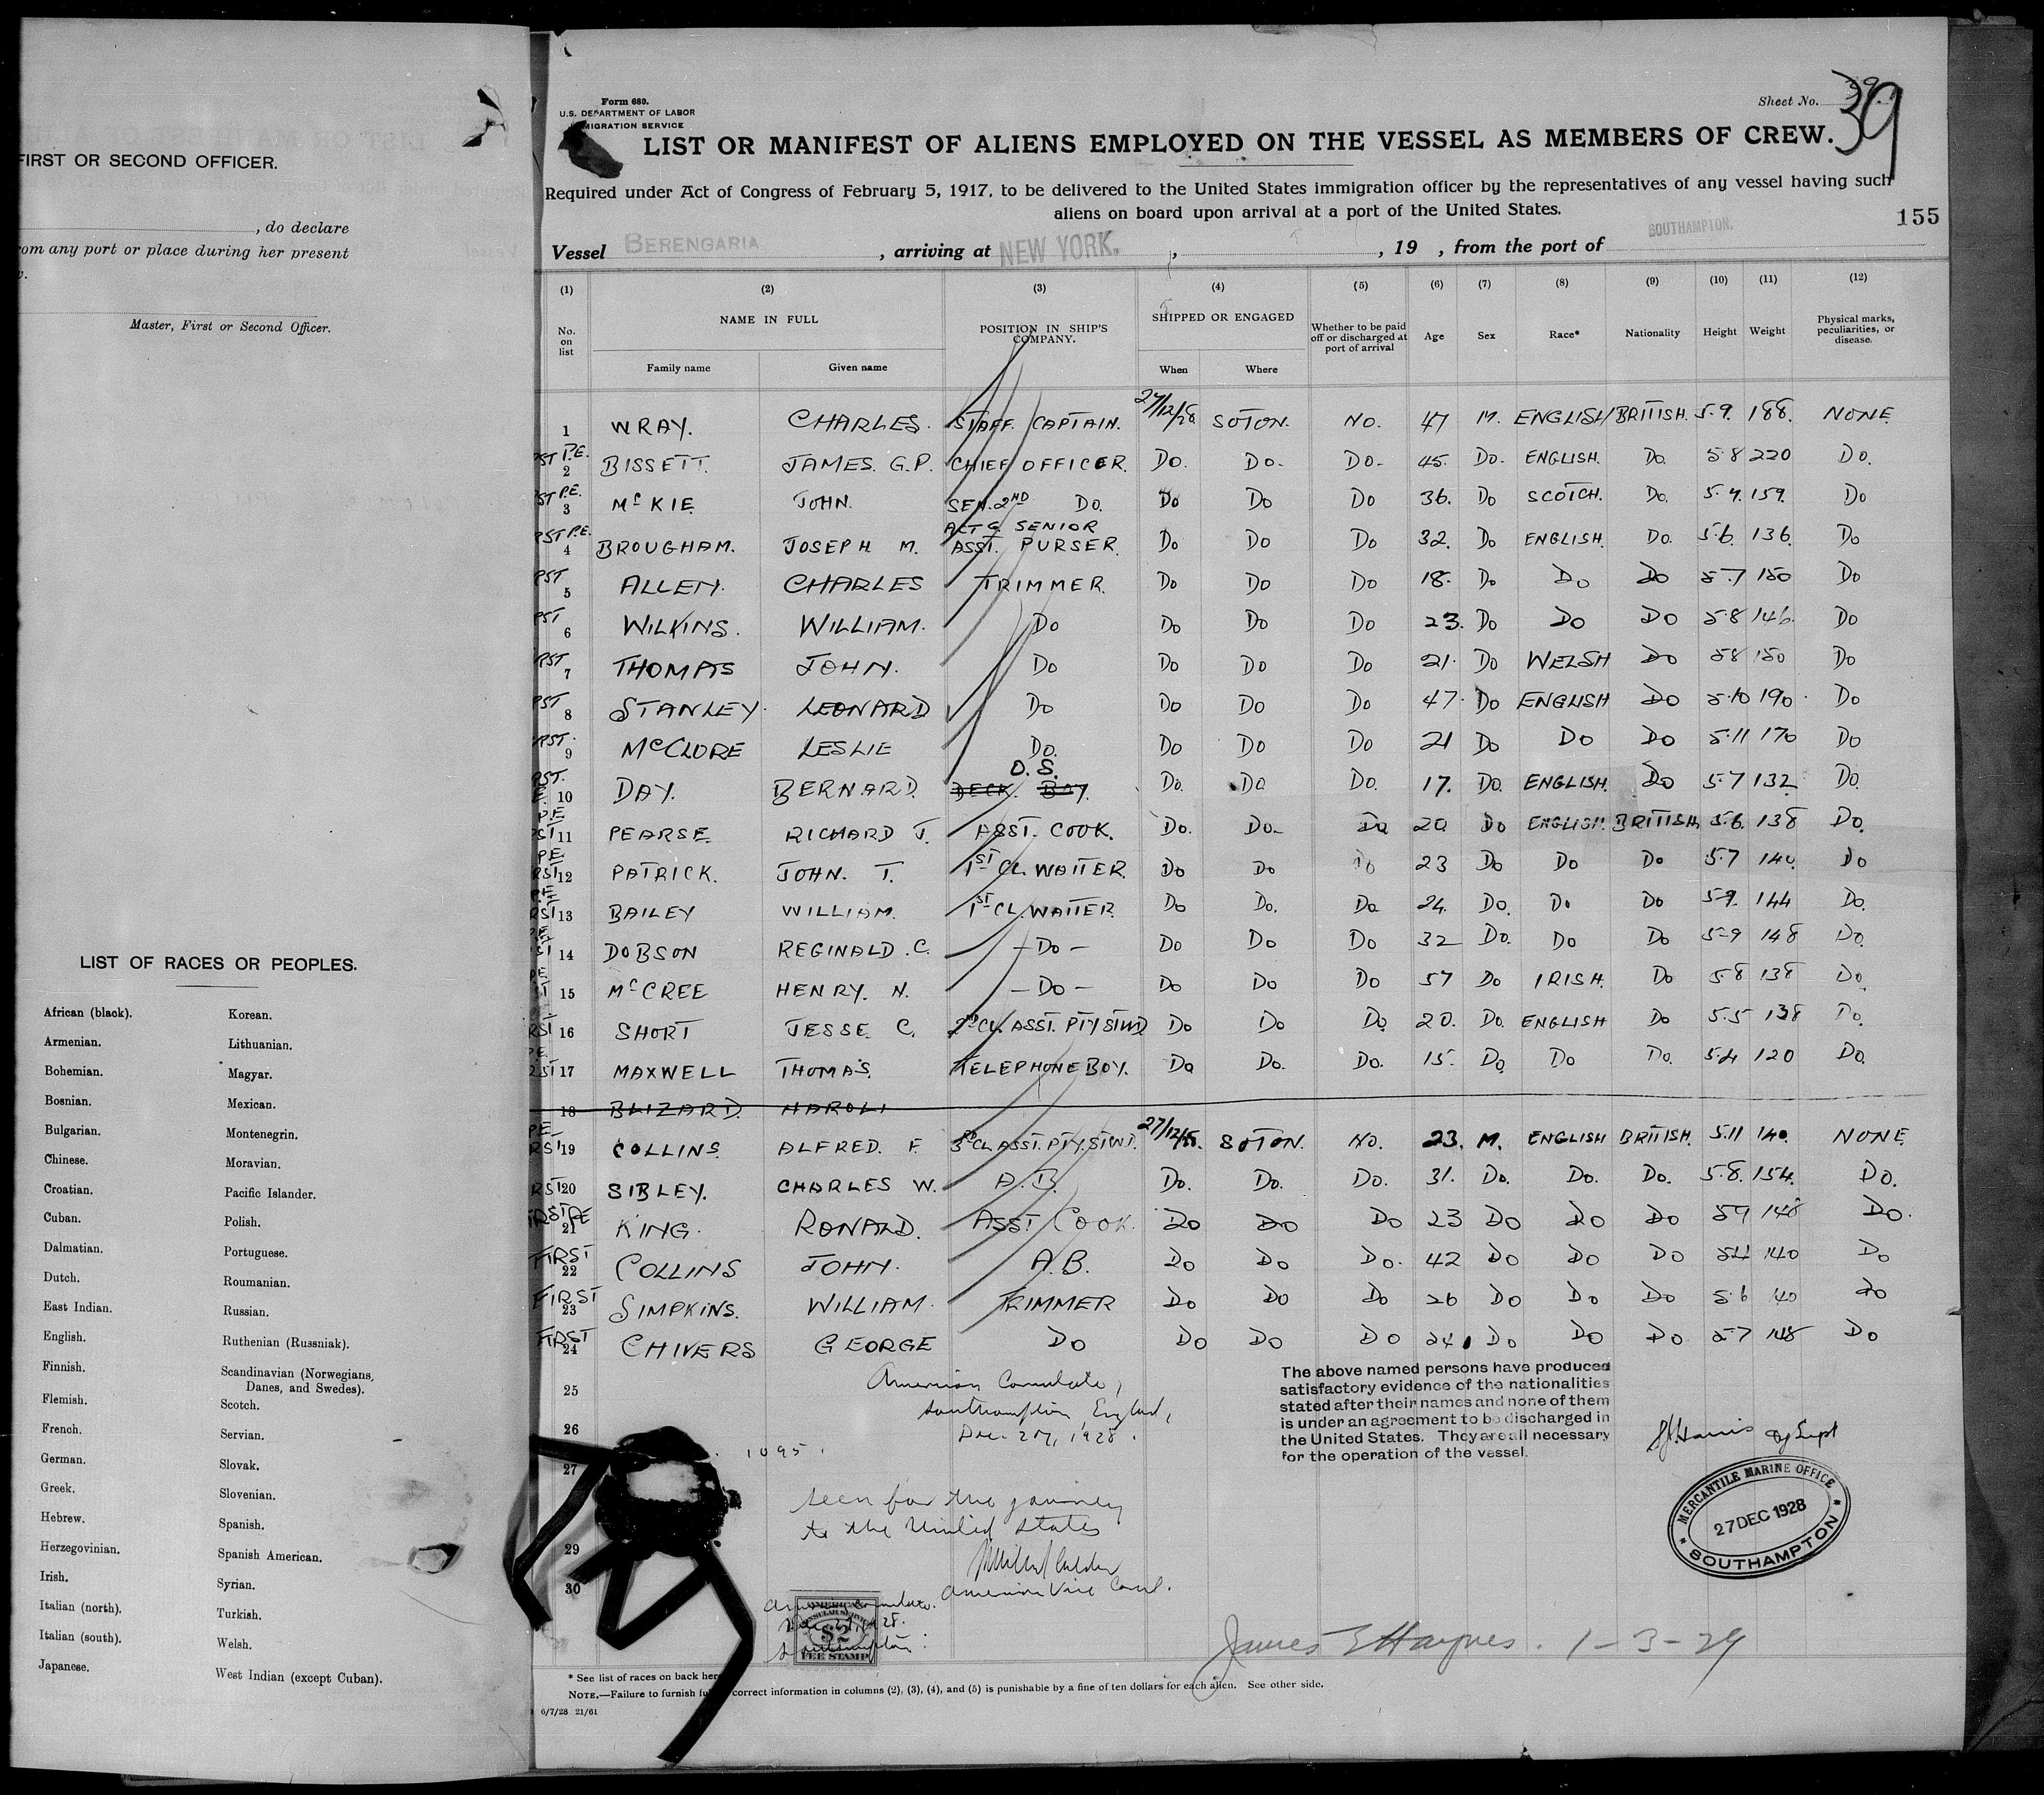 FIRST OR SECOND OFFICER.
, do declare
om any port or place during her present
Master, First or Second Officer.
LIST OF RACES OR PEOPLES.
African (black). Korean.
Armenian. Lithuanian.
Bohemian. Magyar.
Bosnian. Mexican.
Bulgarian. Montenegrin.
Chinese. Moravian.
Croatian. Pacific Islander.
Cuban. Polish.
Dalmatian. Portuguese.
Dutch. Roumanian.
East Indian. Russian.
English. Ruthenian (Russniak).
Finnish. Scandinavian (Norwegians,
Danes, and Swedes).
Flemish. Scotch.
French. Servian.
German. Slovak.
Greek. Slovenian.
Hebrew. Spanish.
Herzegovinian. Spanish American.
Irish. Syrian.
Italian (north). Turkish.
Italian (south). Welsh.
Japanese. West Indian (except Cuban).
Form 680.
U.S. DEPARTMENT OF LABOR
MIGRATION SERVICE
Sheet No. 39
39
LIST OR MANIFEST OF ALIENS EMPLOYED ON THE VESSEL AS MEMBERS OF CREW.
Required under Act of Congress of February 5, 1917, to be delivered to the United States immigration officer by the representatives of any vessel having such
aliens on board upon arrival at a port of the United States.
155
Vessel BERENGARIA, arriving at NEW YORK. , , 19 , from the port of SOUTHAMPTON.
(1) (2) (3) (4) (5) (6) (7) (8) (9) (10) (11) (12)
No. on list NAME IN FULL POSITION IN SHIP'S COMPANY. SHIPPED OR ENGAGED Whether to be paid off or discharged at port of arrival Age Sex Race* Nationality Height Weight Physical marks, peculiarities, or disease.
Family name Given name When Where
1 WRAY. CHARLES. STAFF. CAPTAIN. 27/12/28 SOTON. NO. 47 M. ENGLISH BRITISH. 5.9. 188. NONE.
PST P.E. 2 BISSETT. JAMES. G.P. CHIEF OFFICER. DO. DO. DO. 45. DO. ENGLISH. DO. 5.8 220 DO.
PST P.E. 3 McKIE. JOHN. SEN. 2ND DO. DO DO DO 36. DO SCOTCH. DO. 5.9. 159. DO
PST P.E. 4 BROUGHAM. JOSEPH M. ACTG SENIOR ASST. PURSER. DO DO DO 32. DO ENGLISH. DO. 5.6. 136. DO
PST 5 ALLEN. CHARLES TRIMMER. DO DO DO 18. DO DO DO 5.7 150 DO
PST 6 WILKINS. WILLIAM. DO DO DO DO 23. DO DO DO 5.8 146. DO
RST 7 THOMAS JOHN. DO DO DO DO 21. DO WELSH DO 5.8 150 DO
PST 8 STANLEY. LEONARD DO DO DO DO 47. DO ENGLISH DO 5.10 190. DO
RST. 9 McCLURE LESLIE DO. DO DO DO 21 DO DO DO 5.11 170 DO
RST. E. 10 DAY. BERNARD. DECK. BOY. O.S. DO. DO DO. 17. DO. ENGLISH. DO 5.7 132 DO.
P.E ST 11 PEARSE. RICHARD J. ASST. COOK. DO. DO. DO 20 DO ENGLISH. BRITISH. 5.6. 138 DO.
P.E RST 12 PATRICK. JOHN. T. 1ST CL. WAITER. DO DO DO 23 DO DO DO 5.7 140. DO
P.E RST 13 BAILEY WILLIAM. 1ST CL. WAITER. DO DO. DO 24. DO. DO DO 5.9. 144 DO.
ST 14 DOBSON REGINALD. C. - DO - DO DO DO 32 DO. DO DO 5.9 148 DO.
P.E. 15 McCREE HENRY. N. - DO - DO DO DO 57 DO IRISH. DO 5.8 138 DO.
RST 16 SHORT JESSE. C. 2ND CL. ASST. PTY STWD DO DO DO 20. DO. ENGLISH DO 5.5 138 DO.
P.E. RST 17 MAXWELL THOMAS. TELEPHONE BOY. DO DO. DO. 15. DO. DO DO. 5.4 120 DO.
18 BLIZARD. HAROLD
P.E RST 19 COLLINS. ALFRED. F. 3RD CL. ASST. PTY. STWD. 27/12/28. SOTON. NO. 23. M. ENGLISH BRITISH. 5.11 140. NONE.
RST 20 SIBLEY. CHARLES W. A.B. DO. DO. DO. 31. DO. DO. DO. 5.8. 154. DO.
FIRST PE 21 KING. RONALD. ASST COOK. DO DO DO 23 DO DO DO 5.9 148 DO.
FIRST 22 COLLINS JOHN. A.B. DO DO DO. 42 DO DO DO 5.4 140 DO
FIRST 23 SIMPKINS. WILLIAM. TRIMMER DO DO DO 26 DO DO DO 5.6 140 DO
FIRST 24 CHIVERS GEORGE DO DO DO DO 24 DO DO DO 5.7 148 DO
25 American Consulate,
Southampton, England,
26 Dec. 27, 1928.
27 1095.
Seen for the journey
to the United States
29
30 American Vice Consul.
American Consulate.
Dec. 27, 1928.
Southampton
AMERICAN
CONSULAR SERVICE
$2
FEE STAMP
The above named persons have produced
satisfactory evidence of the nationalities
stated after their names and none of them
is under an agreement to be discharged in
the United States. They are all necessary
for the operation of the vessel.
Harris Dy Supt
MERCANTILE MARINE OFFICE
27 DEC 1928
SOUTHAMPTON
James E Haynes. 1-3-29
* See list of races on back her
NOTE.—Failure to furnish full correct information in columns (2), (3), (4), and (5) is punishable by a fine of ten dollars for each alien. See other side.
6/7/28 21/61